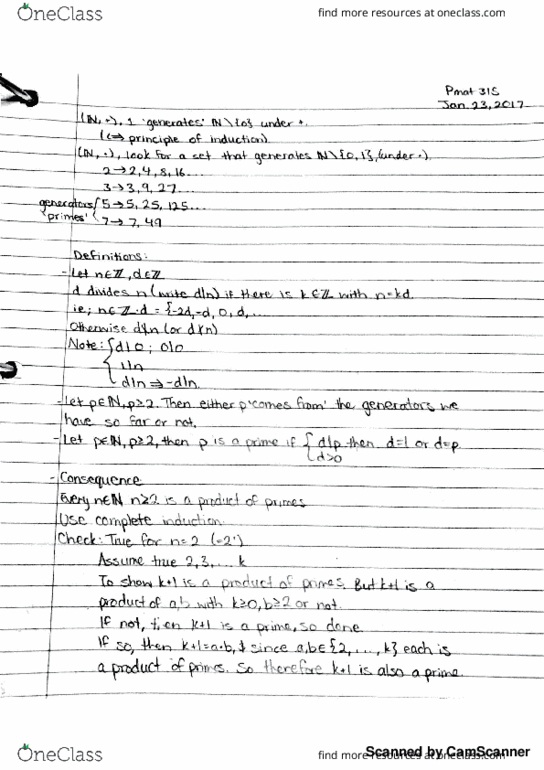 OneClass
find more resources at oneclass.com
Pmat 315
Jan. 23, 2017
(ℕ,+), 1 'generates' ℕ\{0} under +.
(↔ principle of induction).
(ℕ,·), look for a set that generates ℕ\{0,1}, (under ·).
2→2,4,8,16...
3→3,9,27...
generators/ 5→5,25,125...
'primes' 7→7,49
Definitions:
- Let n∈ℤ, d∈ℤ
d divides n (write d|n) if there is k∈ℤ with n=kd.
ie; n∈ℤ·d = {-2d,-d,0,d,...
Otherwise d∤n (or d∤n)
Note: { d|0 ; 0|0
1|n
d|n ⇒ -d|n.
- Let p∈ℕ, p≥2. Then either p 'comes from' the generators we
have so far or not.
- Let p∈ℕ, p≥2, then p is a prime if { d|p then d=1 or d=p
d>0
- Consequence
Every n∈ℕ n≥2 is a product of primes
Use complete induction.
Check: True for n=2 (=2')
Assume true 2,3,... k
To show k+1 is a product of primes. But k+1 is a
product of a,b with k≥0, b≥2 or not.
If not, then k+1 is a prime, so done.
If so, then k+1=a·b, & since a,b∈{2,...,k} each is
a product of primes. So therefore k+1 is also a prime.
OneClass
find more resources at oneclass.com
Scanned by CamScanner